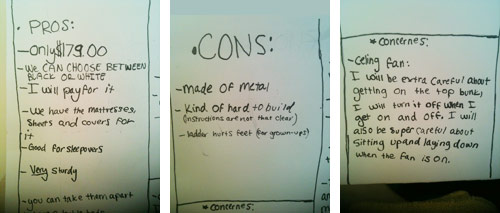 • PROS:
—Only $179.00
—We CAN CHOOSE BETWEEN
BLACK OR WHITE
—I will pay for it
—We have the mattresses,
sheets and covers for
it
—Good for sleepovers
—Very sturdy
—you can take them apart
•CONS:
—Made of metal
—Kind of hard to build
(instructions are not that clear)
—ladder hurts feet (for grown-ups)
concernes:
* concernes:
—Celing fan:
I will be extra careful about
getting on the top bunk,
I will turn it off when I
get on and off. I will
also be super careful about
sitting up and laying down
when the fan is on.